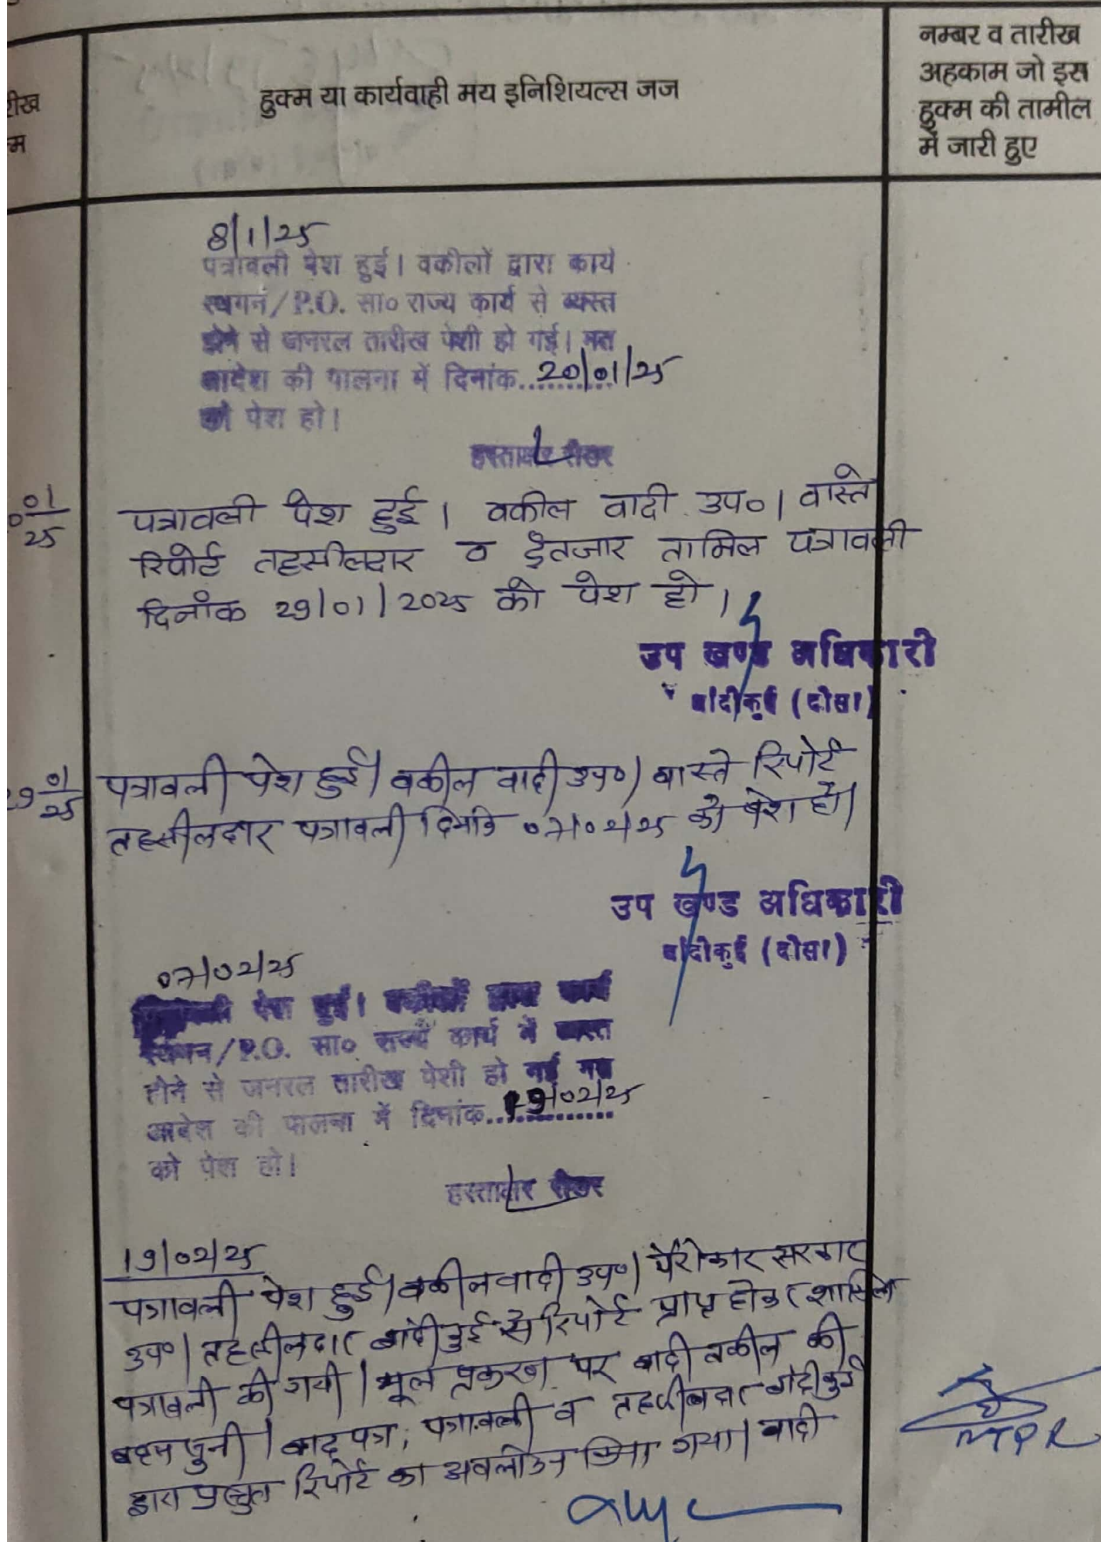 रीख
म
हुक्म या कार्यवाही मय इनिशियल्स जज
नम्बर व तारीख
अहकाम जो इस
हुक्म की तामील
में जारी हुए
8/1/25
पत्रावली पेश हुई। वकीलों द्वारा कार्य
स्थगन/P.O. सा० राज्य कार्य से व्यस्त
होने से जनरल तारीख पेशी हो गई। गत
आदेश की पालना में दिनांक..20/01/25
को पेश हो।
हस्ताक्षर रीडर
01
25
पत्रावली पेश हुई। वकील वादी उप०। वास्ते
रिपोर्ट तहसीलदार व ईतजार तामिल पत्रावली
दिनाँक 29/01/2025 को पेश हो।
उप खण्ड अधिकारी
बांदीकुई (दौसा)
29 01
25
पत्रावली पेश हुई। वकील वादी उप०। वास्ते रिपोर्ट
तहसीलदार पत्रावली दिनांक 07/02/25 को पेश हो।
उप खण्ड अधिकारी
बांदीकुई (दौसा)
07/02/25
पेश हुई। वकीलों द्वारा कार्य
स्थगन/P.O. सा० राज्य कार्य में व्यस्त
होने से जनरल तारीख पेशी हो गई गत
आदेश की पालना में दिनांक..19/02/25
को पेश हो।
हस्ताक्षर रीडर
19/02/25
पत्रावली पेश हुई। वकील वादी उप०। पैरोकार सरकार
उप०। तहसीलदार बांदीकुई से रिपोर्ट प्राप्त होकर शामिल
पत्रावली की गयी। मूल प्रकरण पर वादी वकील की
बहस सुनी। वाद पत्र, पत्रावली व तहसीलदार बांदीकुई
द्वारा प्रस्तुत रिपोर्ट का अवलोकन किया गया। वादी